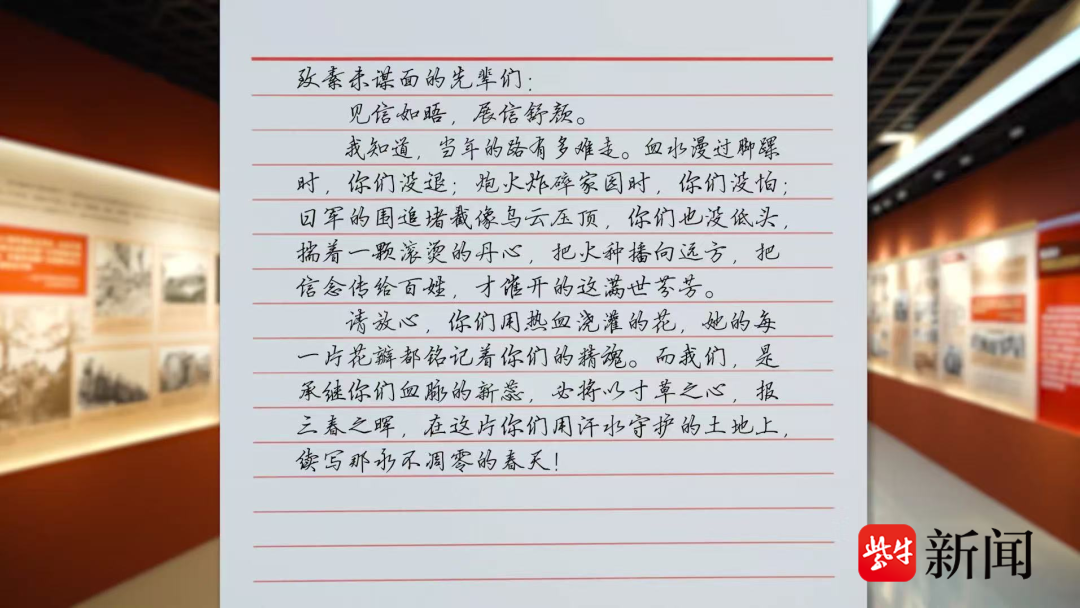 致素未谋面的先辈们：
见信如晤，展信舒颜。
我知道，当年的路有多难走。血水漫过脚踝
时，你们没退；炮火炸碎家园时，你们没怕；
日军的围追堵截像乌云压顶，你们也没低头，
揣着一颗滚烫的丹心，把火种播向远方，把
信念传给百姓，才催开的这满世芬芳。
请放心，你们用热血浇灌的花，她的每
一片花瓣都铭记着你们的精魂。而我们，是
承继你们血脉的新蕊，必将以寸草之心，报
三春之晖，在这片你们用汗水守护的土地上，
续写那永不凋零的春天！
紫牛新闻